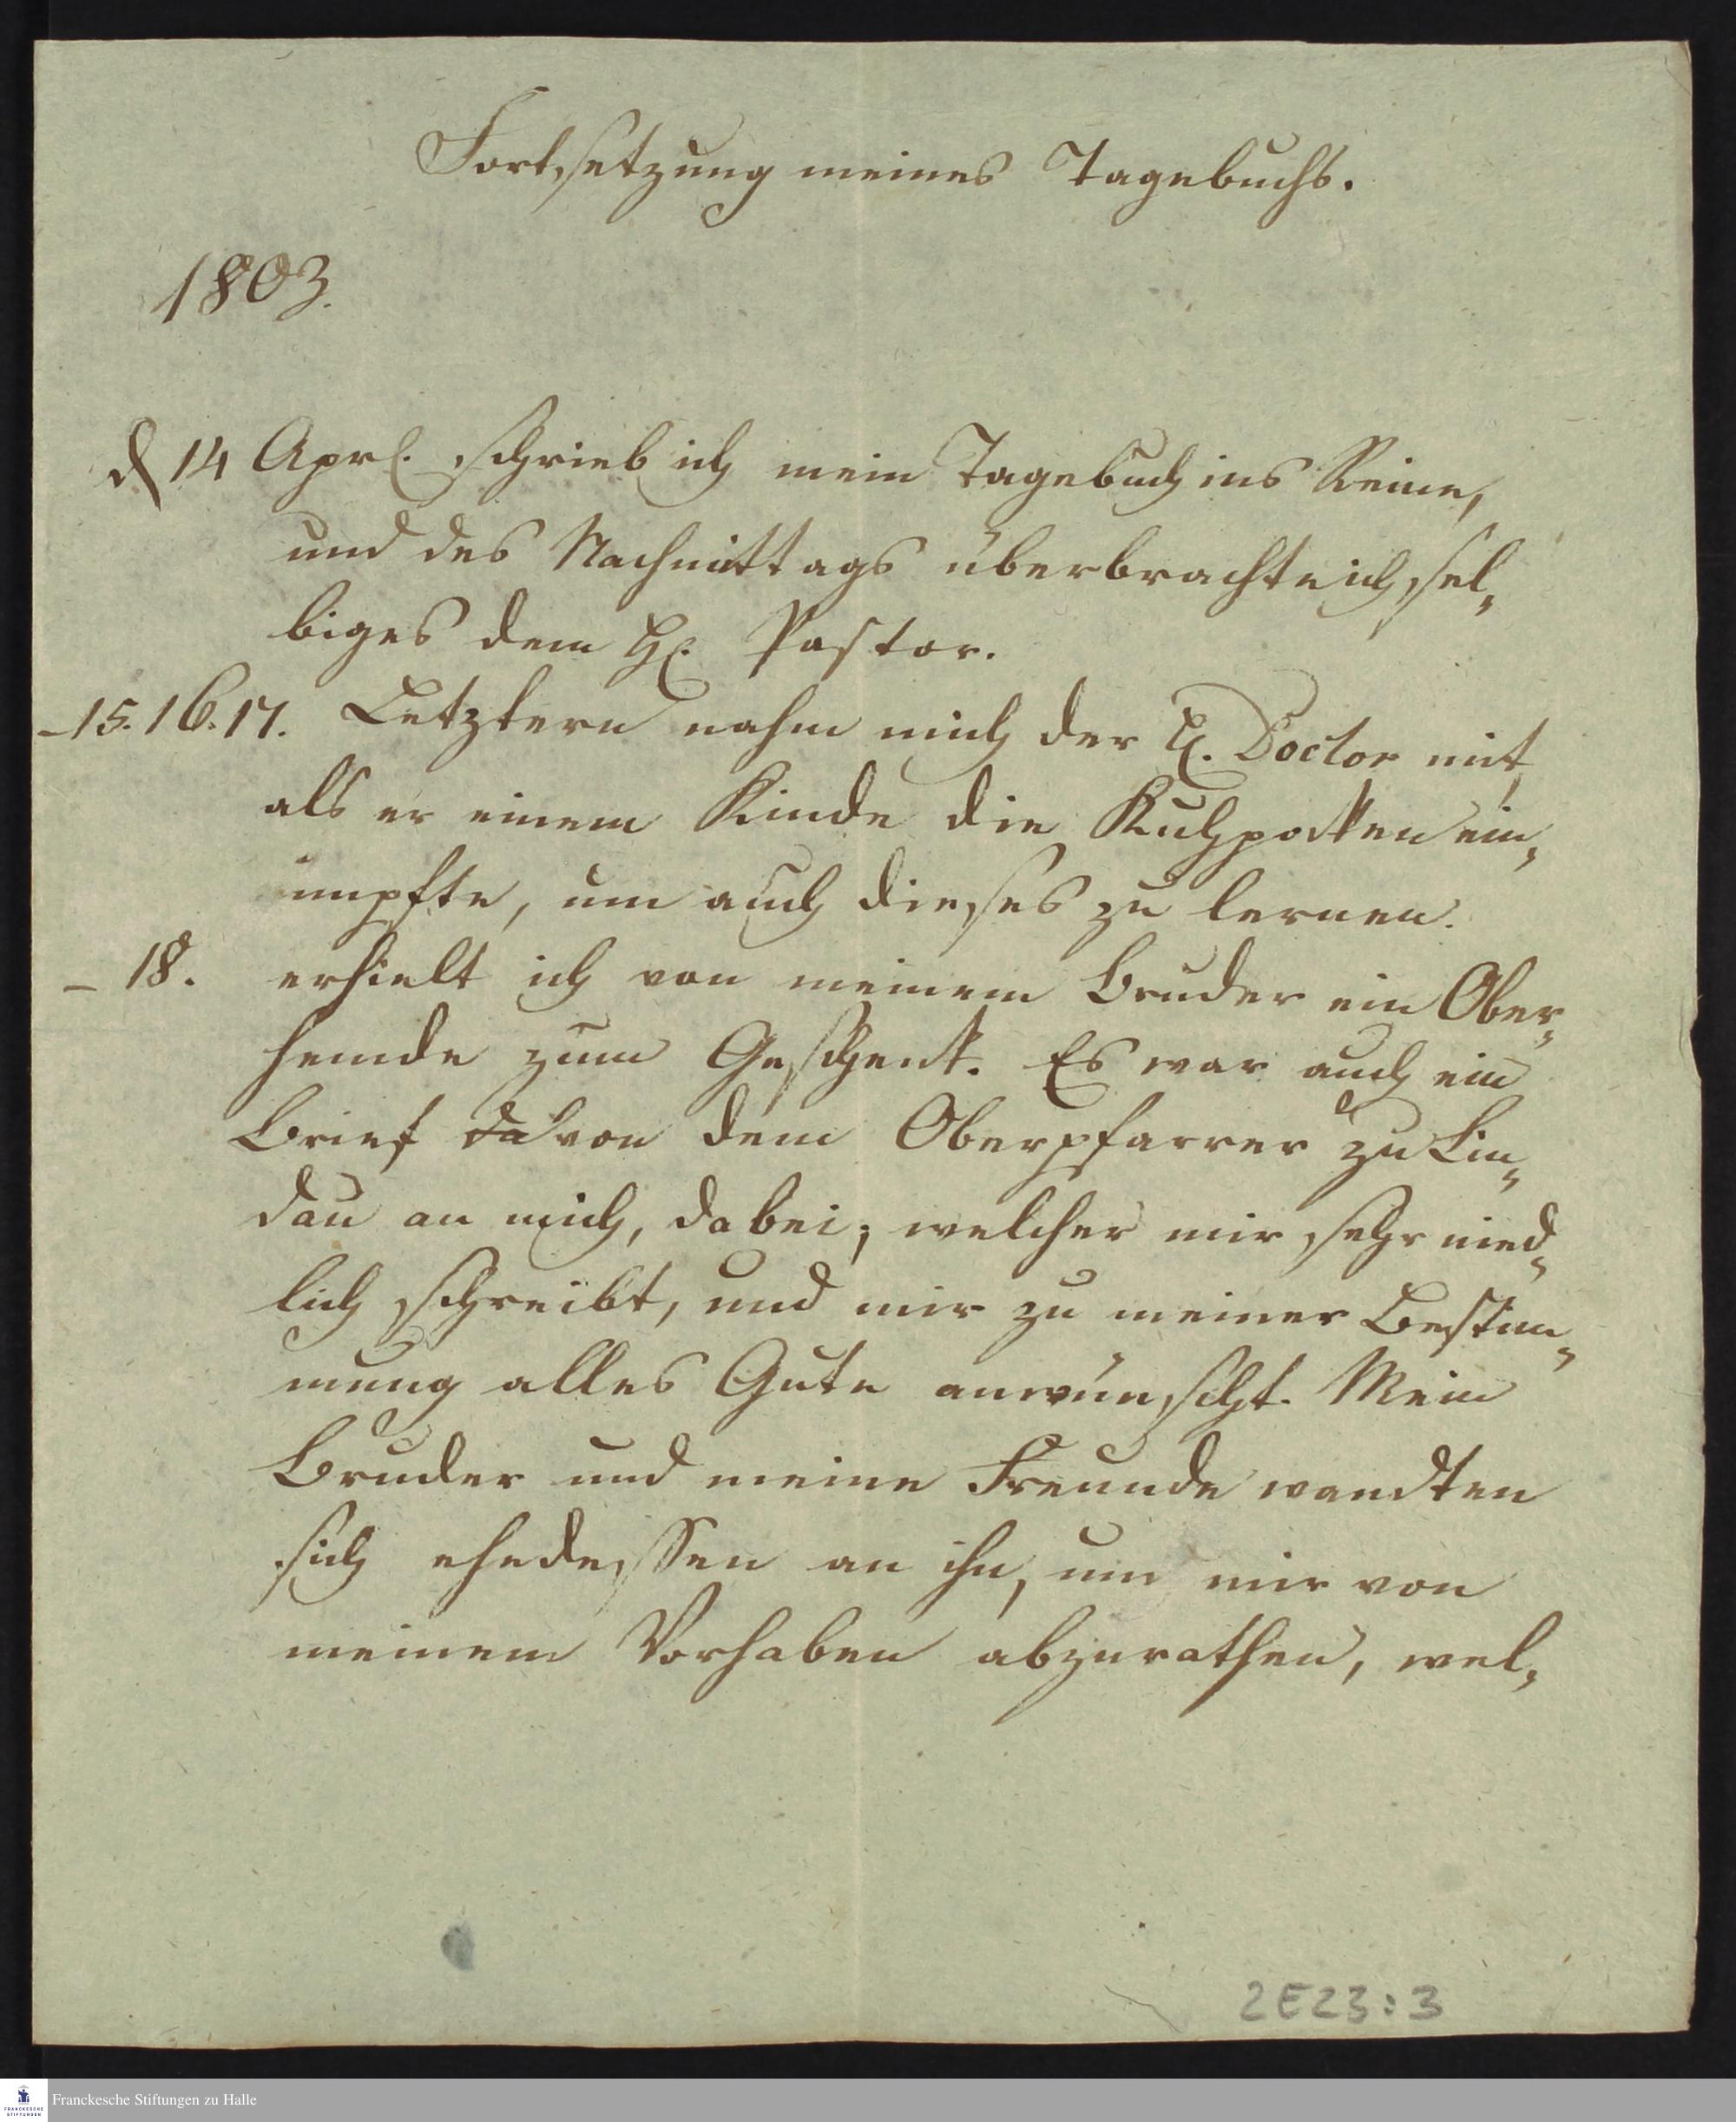 Fortsetzung meines Tagebuchs.
1803.
d 14 Aprl. schrieb ich mein Tagebuch ins Reine,
und des Nachmittags überbrachte ich sel„
biges dem H. Pastor.
– 15. 16. 17. Letztern nahm mich der H. Doctor mit,
als er einem Kinde die Kuhpocken ein„
impfte, um auch dieses zu lernen.
– 18. erhielt ich von meinem Bruder ein Ober„
hemde zum Geschenk. Es war auch ein
Brief da von dem Oberpfarrer zu Lin„
dau an mich, dabei; welcher mir sehr nied„
lich schreibt, und mir zu meiner Bestim„
mung alles Gute anwünscht. Mein
Bruder und meine Freunde wandten
sich ehedessen an ihn, um mir von
meinem Vorhaben abzurathen, wel„
2E23:3
Franckesche Stiftungen zu Halle
FRANCKESCHE
STIFTUNGEN